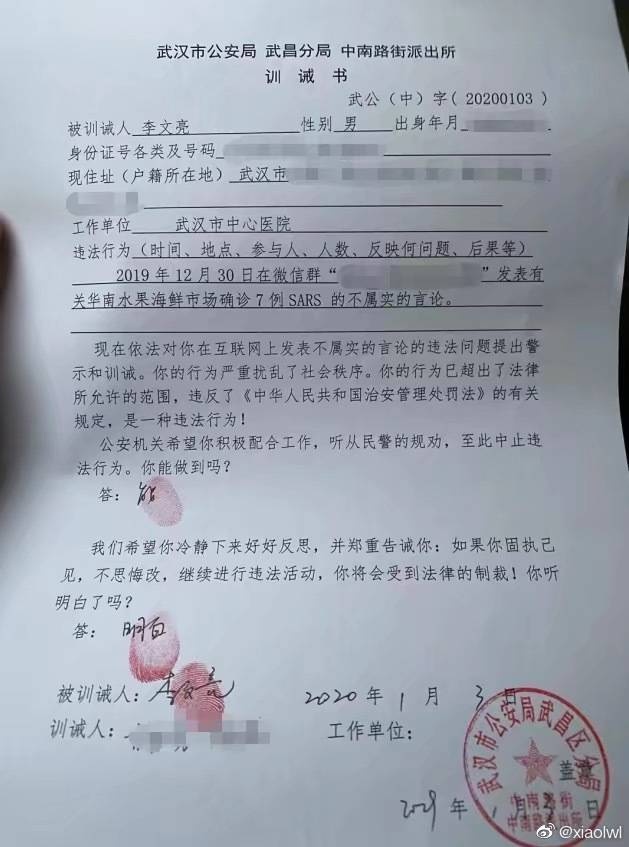 武汉市公安局 武昌分局 中南路街派出所
训 诫 书
武公（中）字（20200103）
被训诫人 李文亮 性别 男 出身年月
身份证号各类及号码
现住址（户籍所在地） 武汉市
工作单位 武汉市中心医院
违法行为（时间、地点、参与人、人数、反映何问题、后果等）
2019年12月30日在微信群“ ”发表有
关华南水果海鲜市场确诊7例SARS的不属实的言论。
现在依法对你在互联网上发表不属实的言论的违法问题提出警
示和训诫。你的行为严重扰乱了社会秩序。你的行为已超出了法律
所允许的范围，违反了《中华人民共和国治安管理处罚法》的有关
规定，是一种违法行为！
公安机关希望你积极配合工作，听从民警的规劝，至此中止违
法行为。你能做到吗？
答：能
我们希望你冷静下来好好反思，并郑重告诫你：如果你固执己
见，不思悔改，继续进行违法活动，你将会受到法律的制裁！你听
明白了吗？
答：明白
被训诫人：李文亮 2020年1月3日
训诫人： 工作单位：
武汉市公安局武昌区分局
盖章
中南路街
中南路街派出所
年1月3日
@xiaolwl